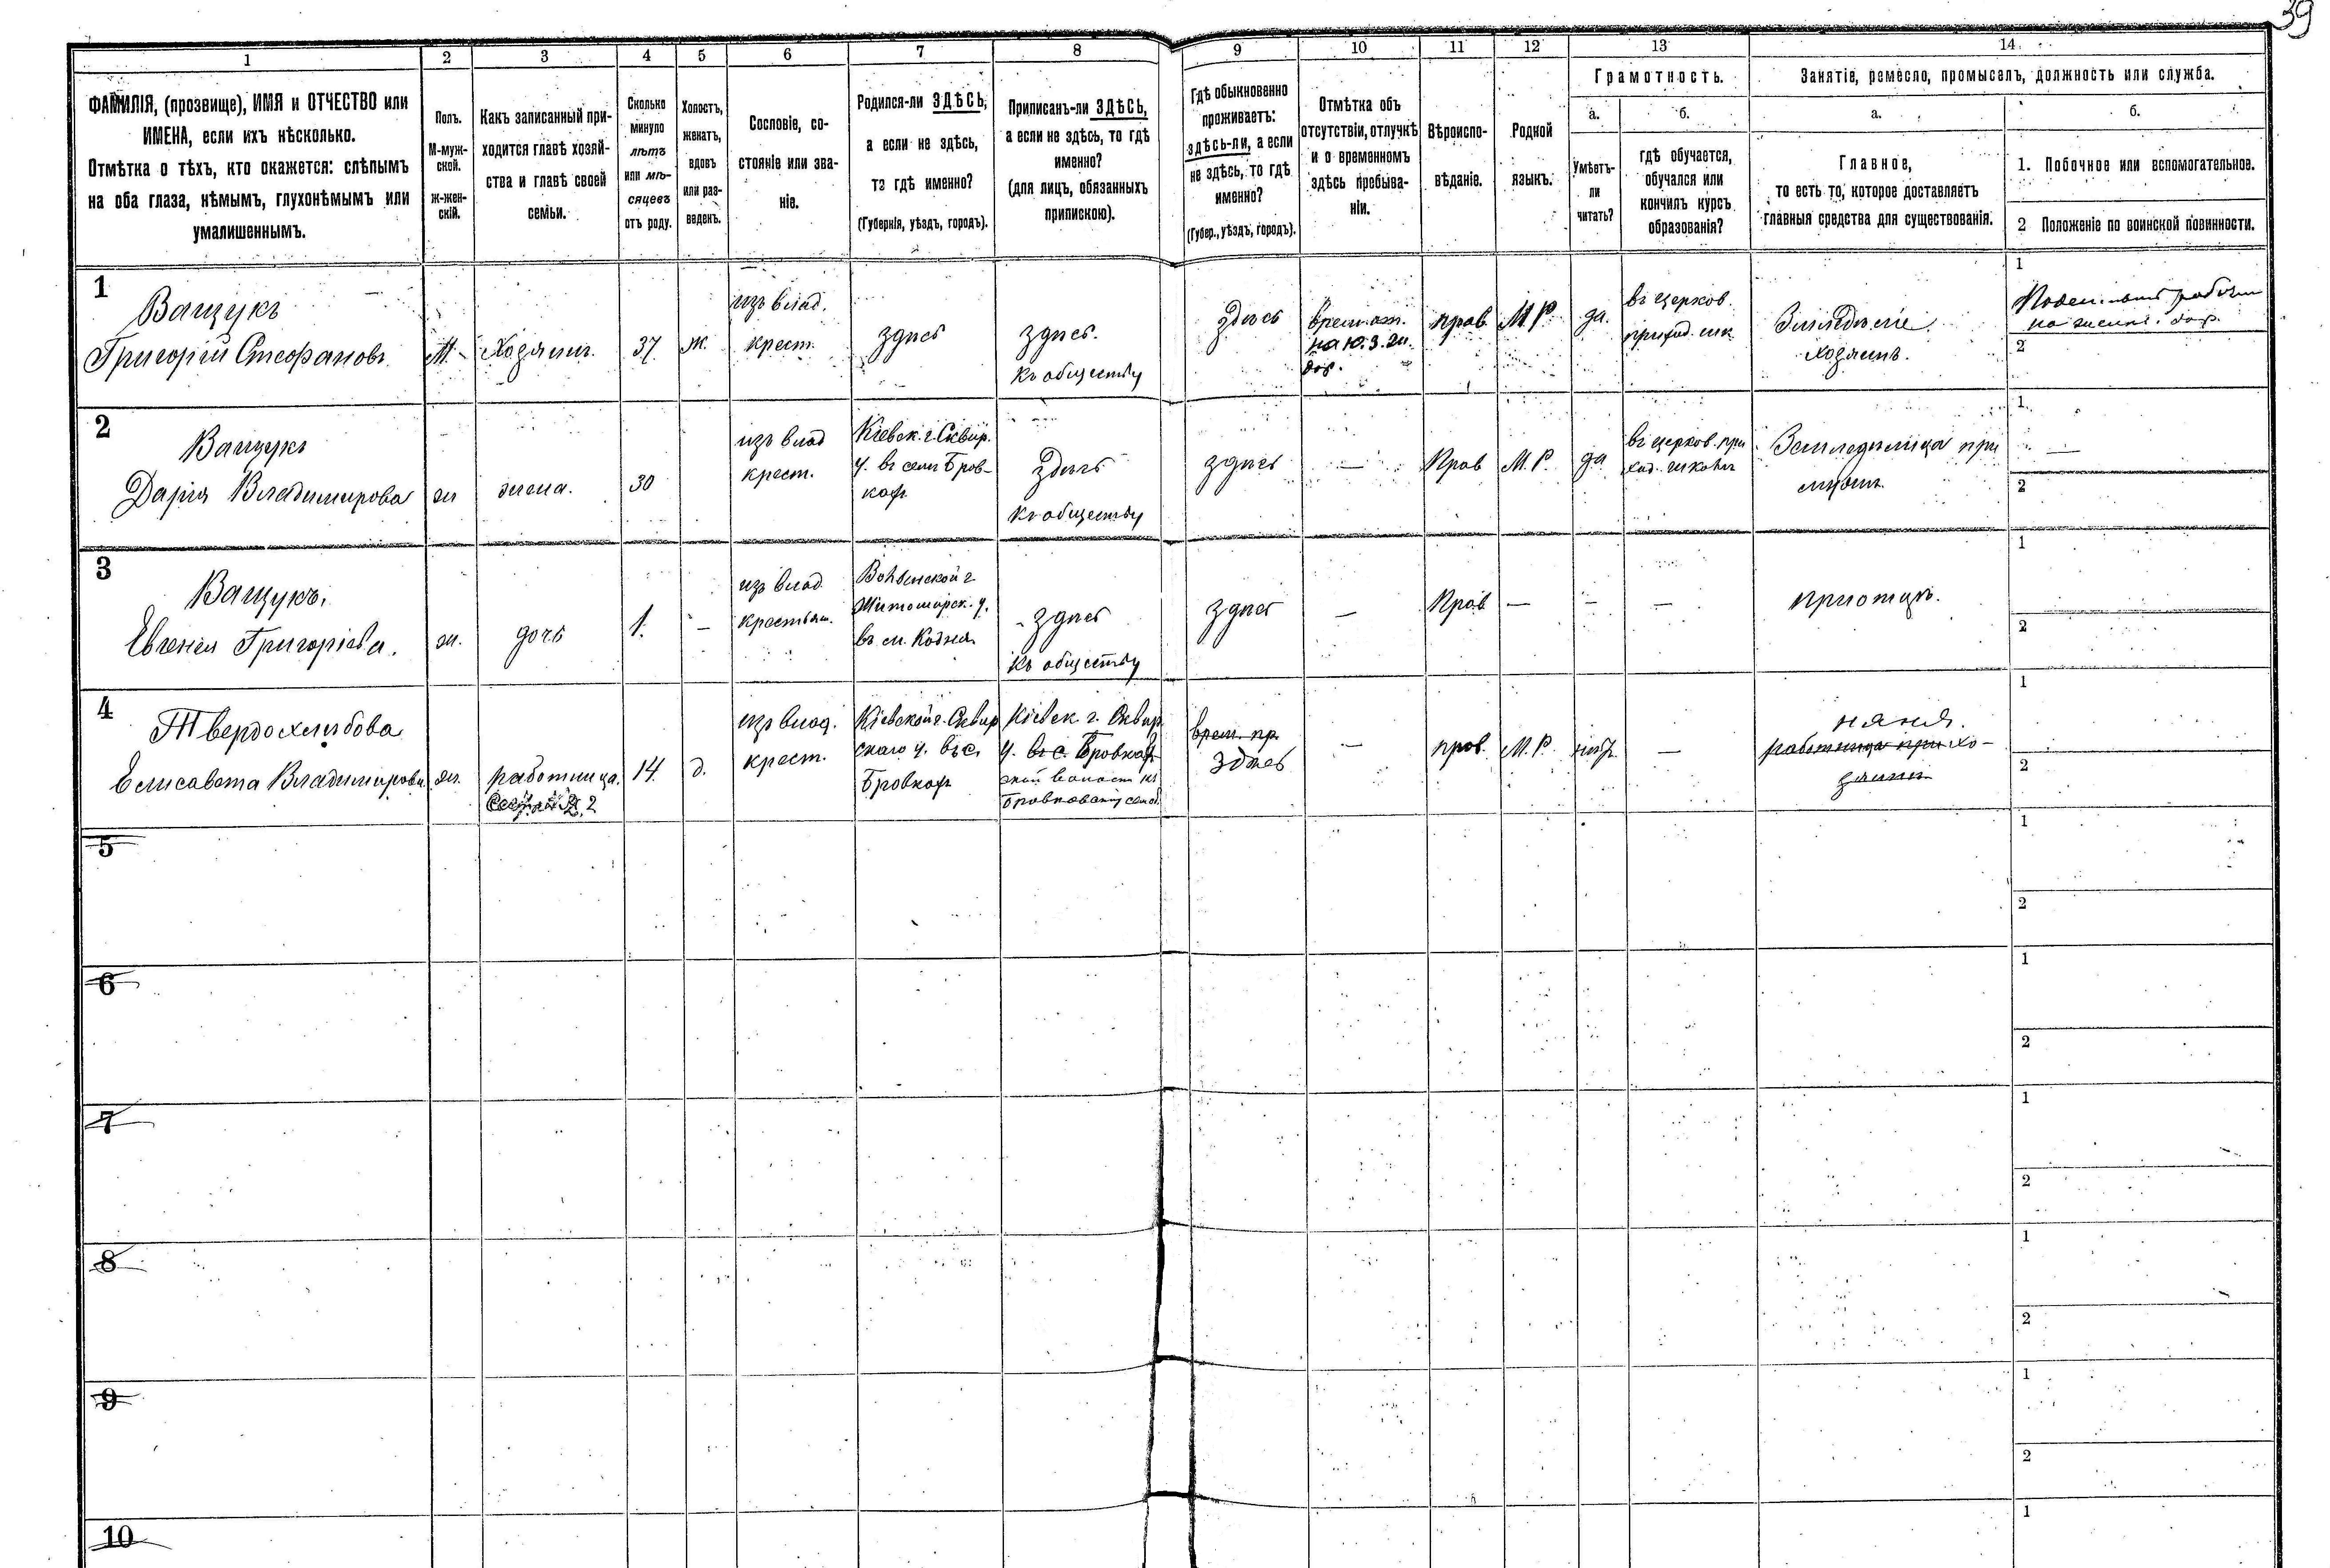 39
1 2 3 4 5 6 7 8 9 10 11 12 13 14
ФАМИЛІЯ, (прозвище), ИМЯ и ОТЧЕСТВО или
ИМЕНА, если ихъ нѣсколько.
Отмѣтка о тѣхъ, кто окажется: слѣпымъ
на оба глаза, нѣмымъ, глухонѣмымъ или
умалишеннымъ.
Полъ.
М-муж-
ской.
ж-жен-
скій.
Какъ записанный при-
ходится главѣ хозяй-
ства и главѣ своей
семьи.
Сколько
минуло
лѣтъ
или мѣ-
сяцевъ
отъ роду.
Холостъ,
женатъ,
вдовъ
или раз-
веденъ.
Сословіе, со-
стояніе или зва-
ніе.
Родился-ли ЗДѢСЬ,
а если не здѣсь,
то гдѣ именно?
(Губернія, уѣздъ, городъ).
Приписанъ-ли ЗДѢСЬ,
а если не здѣсь, то гдѣ
именно?
(для лицъ, обязанныхъ
припискою).
Гдѣ обыкновенно
проживаетъ:
здѣсь-ли, а если
не здѣсь, то гдѣ
именно?
(Губер., уѣздъ, городъ).
Отмѣтка объ
отсутствіи, отлучкѣ
и о временномъ
здѣсь пребыва-
ніи.
Вѣроиспо-
вѣданіе.
Родной
языкъ.
Грамотность.
а.
Умѣетъ-
ли
читать?
б.
гдѣ обучается,
обучался или
кончилъ курсъ
образованія?
Занятіе, ремесло, промыселъ, должность или служба.
а.
Главное,
то есть то, которое доставляетъ
главныя средства для существованія.
б.
1. Побочное или вспомогательное.
2 Положеніе по воинской повинности.
1
Ващукъ
Григорій Стефановъ
М.
Хозяинъ.
37
ж.
изъ влад.
крест.
здѣсь
здѣсь.
къ обществу
здѣсь
врем. от.
на Ю. З. ж.
дор.
прав
М. Р.
да.
въ церков.
приход. шк.
Земледѣліе
хозяинъ.
1
на желѣз. дор.
2
2
Ващукъ
Дарія Владимирова
ж
жена.
30
изъ влад
крест.
Кіевск. г. Сквир.
у. въ селѣ Бров-
кахъ
здѣсь
къ обществу
здѣсь
—
Прав
М. Р.
да
въ церков. при
ход. школѣ
Земледѣлица при
мужѣ.
1 —
2
3
Ващукъ.
Евгенія Григоріева.
ж.
дочь
1.
—
изъ влад
крестьян.
Волынской г.
Житомирск. у.
въ м. Кодня
здѣсь
къ обществу
здѣсь
—
Прав
—
—
—
при отцѣ.
1
2
4
Твердохлѣбова
Елисавета Владимирова
ж.
работница.
сестра 2
14
д.
изъ влад.
крест.
Кіевской г. Сквир
скаго у. въ с.
Бровкахъ
Кіевск. г. Сквир.
у. въ с. Бровках
ской волост къ
Бровковскому
врем. пр.
здѣсь
—
прав.
М. Р.
нѣтъ
—
няня.
работница при хо-
зяинѣ
1
2
5
1
2
6
1
2
7
1
2
8
1
2
9
1
2
10
1